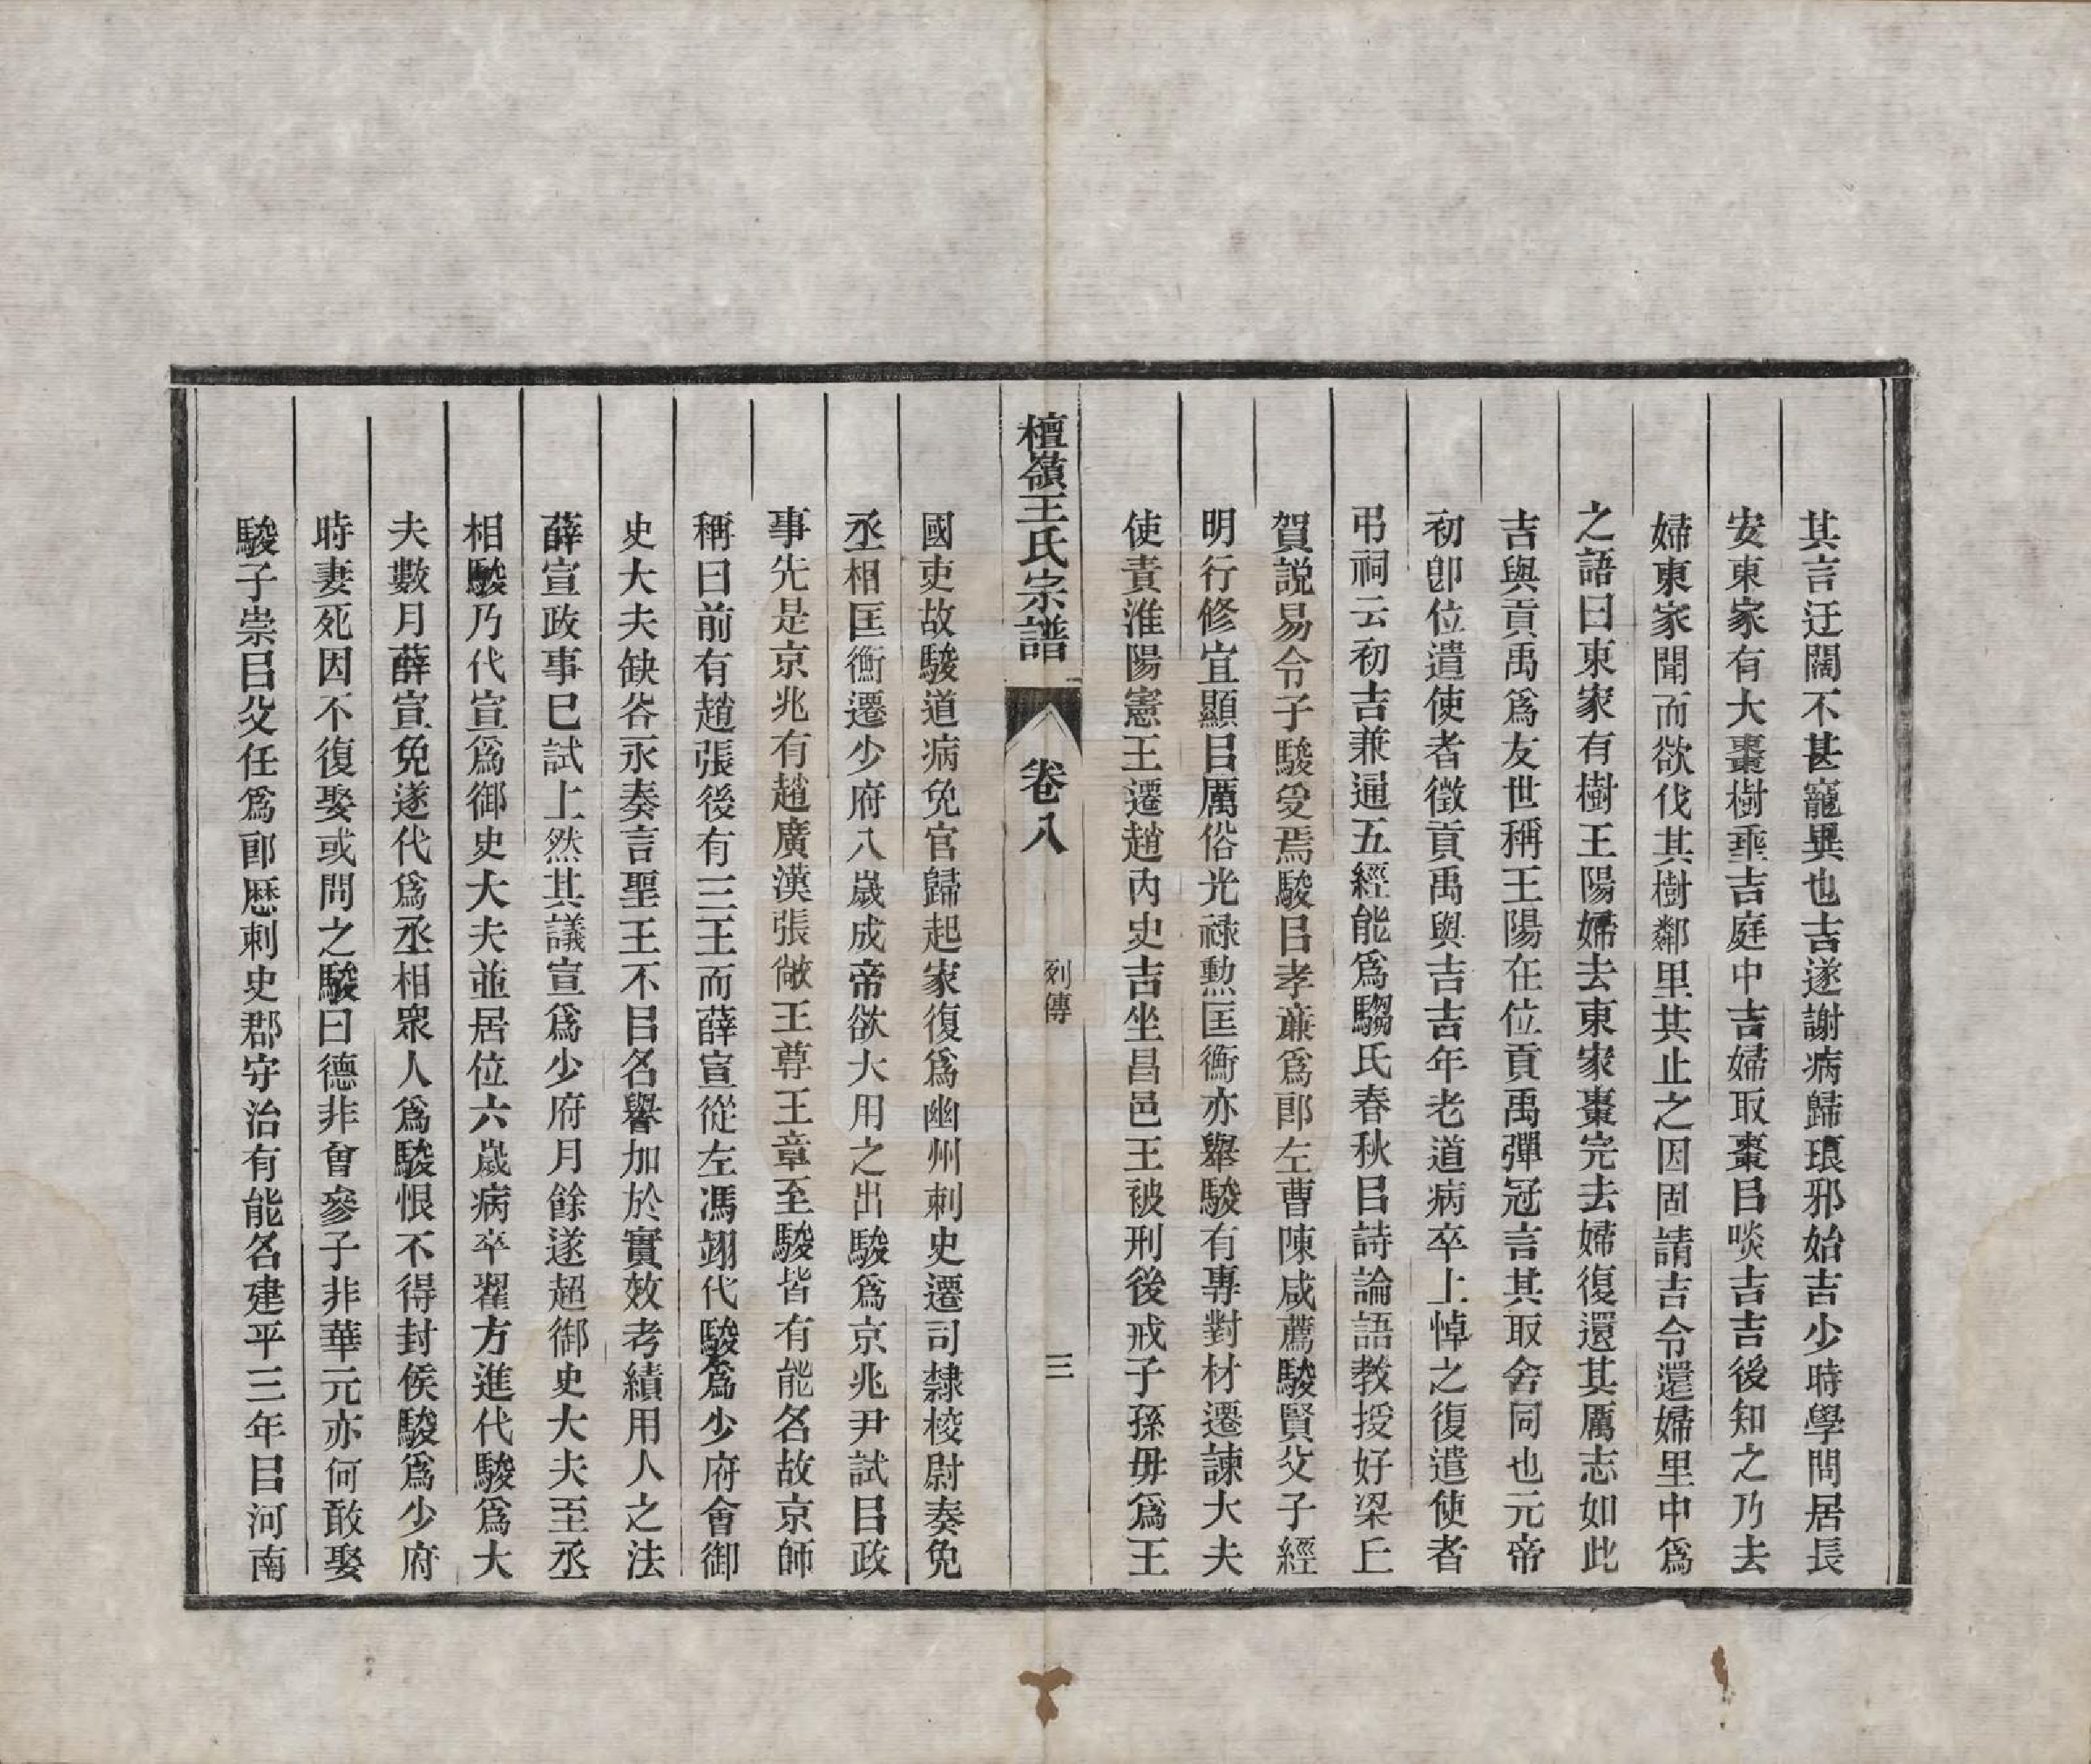 其言迂闊不甚寵異也吉遂謝病歸琅邪始吉少時學問居長
安東家有大棗樹垂吉庭中吉婦取棗㠯啖吉吉後知之乃去
婦東家聞而欲伐其樹鄰里共止之因固請吉令還婦里中爲
之語曰東家有樹王陽婦去東家棗完去婦復還其厲志如此
吉與貢禹爲友世稱王陽在位貢禹彈冠言其取舍同也元帝
初卽位遣使者徵貢禹與吉吉年老道病卒上悼之復遣使者
弔祠云初吉兼通五經能爲騶氏春秋㠯詩論語教授好梁丘
賀説易令子駿受焉駿㠯孝廉爲郎左曹陳咸薦駿賢父子經
明行修宜顯㠯厲俗光祿勲匡衡亦舉駿有專對材遷諫大夫
使責淮陽憲王遷趙內史吉坐昌邑王被刑後戒子孫毋爲王
檀嶺王氏宗譜 卷八 列傳 三
國吏故駿道病免官歸起家復爲幽州刺史遷司隸校尉奏免
丞相匡衡遷少府八歲成帝欲大用之出駿爲京兆尹試㠯政
事先是京兆有趙廣漢張敞王尊王章至駿皆有能名故京師
稱曰前有趙張後有三王而薛宣從左馮翊代駿爲少府會御
史大夫缺谷永奏言聖王不㠯名譽加於實效考績用人之法
薛宣政事已試上然其議宣爲少府月餘遂超御史大夫至丞
相駿乃代宣爲御史大夫並居位六歲病卒翟方進代駿爲大
夫數月薛宣免遂代爲丞相眾人爲駿恨不得封侯駿爲少府
時妻死因不復娶或問之駿曰德非曾參子非華元亦何敢娶
駿子崇㠯父任爲郎歷刺史郡守治有能名建平三年㠯河南